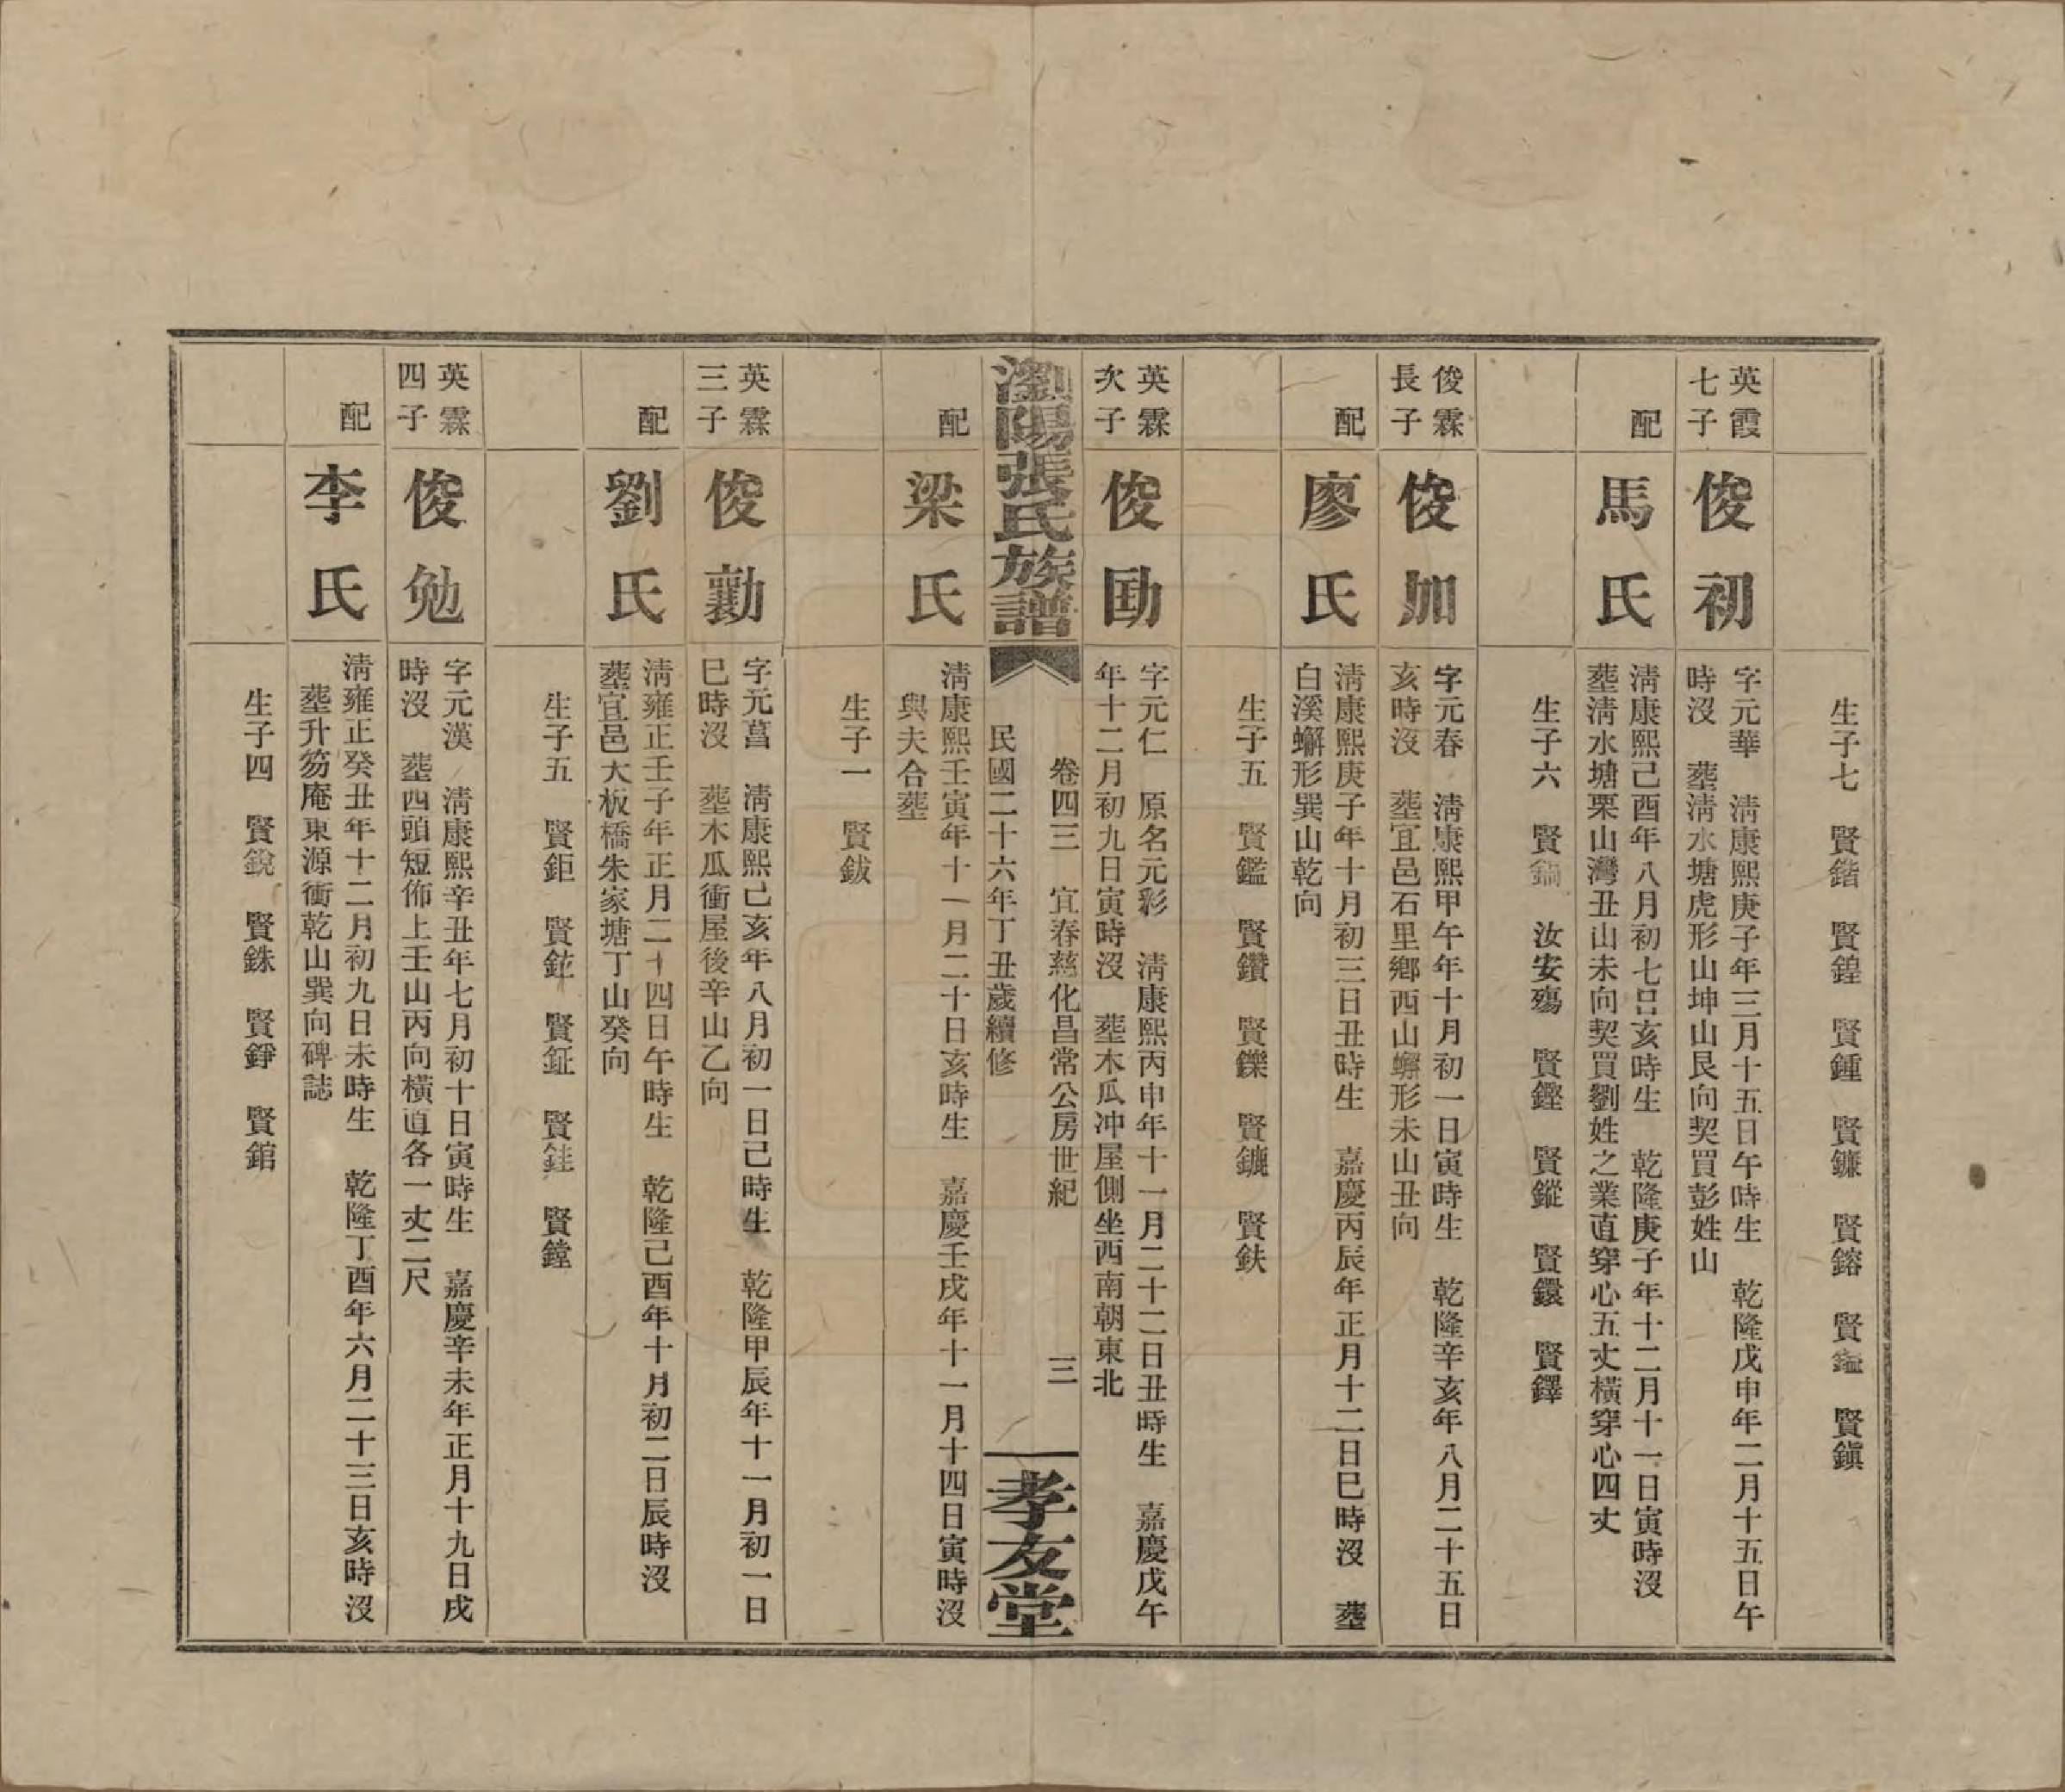 生子七　賢鍇　賢鍠　賢鍾　賢鎌　賢鎔　賢鎰　賢鎭
英霞
七子
俊初
字元華　淸康熙庚子年三月十五日午時生　乾隆戊申年二月十五日午
時沒　塟淸水塘虎形山坤山艮向契買彭姓山
配
馬氏
淸康熙己酉年八月初七日亥時生　乾隆庚子年十二月十一日寅時沒
塟淸水塘栗山灣丑山未向契買劉姓之業直穿心五丈橫穿心四丈
生子六　賢　汝安殤　賢鏗　賢鏦　賢鐶　賢鐸
俊霖
長子
俊加
字元春　淸康熙甲午年十月初一日寅時生　乾隆辛亥年八月二十五日
亥時沒　塟宜邑石里鄕西山蠏形未山丑向
配
廖氏
淸康熙庚子年十月初三日丑時生　嘉慶丙辰年正月十二日巳時沒　塟
白溪蠏形巽山乾向
生子五　賢鑑　賢鑽　賢鑠　賢鑣　賢鈇
英霖
次子
俊劻
字元仁　原名元彩　淸康熙丙申年十一月二十二日丑時生　嘉慶戊午
年十二月初九日寅時沒　塟木瓜冲屋側坐西南朝東北
瀏陽張氏族譜
卷四三　宜春慈化昌常公房世紀　三
民國二十六年丁丑歲續修
孝友堂
配
梁氏
淸康熙壬寅年十一月二十日亥時生　嘉慶壬戌年十一月十四日寅時沒
與夫合塟
生子一　賢鈸
英霖
三子
俊勷
字元菖　淸康熙己亥年八月初一日己時生　乾隆甲辰年十一月初一日
巳時沒　塟木瓜衝屋後辛山乙向
配
劉氏
淸雍正壬子年正月二十四日午時生　乾隆己酉年十月初二日辰時沒
塟宜邑大板橋朱家塘丁山癸向
生子五　賢鉅　賢鉝　賢鉦　賢銈　賢鏜
英霖
四子
俊勉
字元漢　淸康熙辛丑年七月初十日寅時生　嘉慶辛未年正月十九日戌
時沒　塟西頭短㑚上壬山丙向橫直各一丈二尺
配
李氏
淸雍正癸丑年十二月初九日未時生　乾隆丁酉年六月二十三日亥時沒
塟升笏庵東源衝乾山巽向碑誌
生子四　賢銳　賢銖　賢錚　賢錧